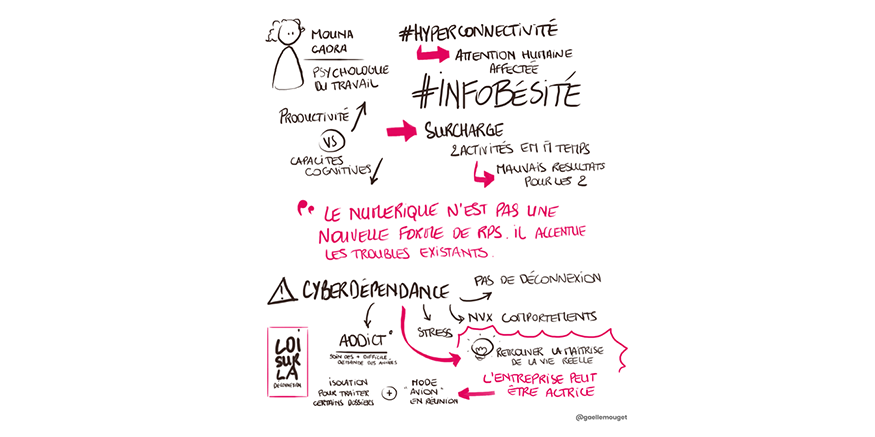 MOUNA
CADRA
PSYCHOLOGUE
DU TRAVAIL
#HYPERCONNECTIVITÉ
ATTENTION HUMAINE
AFFECTÉE
#INFOBÉSITÉ
PRODUCTIVITÉ
VS
CAPACITES
COGNITIVES
SURCHARGE
2 ACTIVITÉS EN M̂ TEMPS
MAUVAIS RESULTATS
POUR LES 2
" LE NUMERIQUE N'EST PAS UNE
NOUVELLE FORME DE RPS. IL ACCENTUE
LES TROUBLES EXISTANTS.
CYBERDÉPENDANCE
PAS DE DÉCONNEXION
NVX COMPORTEMENTS
STRESS
ADDICT°
SOIN DES + DIFFICILE.
DEMANDE DES ANNÉES
RETROUVER LA MAITRISE
DE LA VIE REELLE
LOI
SUR
LA
DECONNEXION
ISOLATION
POUR TRAITER
CERTAINS DOSSIERS
+
MODE
"AVION"
EN RÉUNION
L'ENTREPRISE PEUT
ÊTRE ACTRICE
@gaellemouget